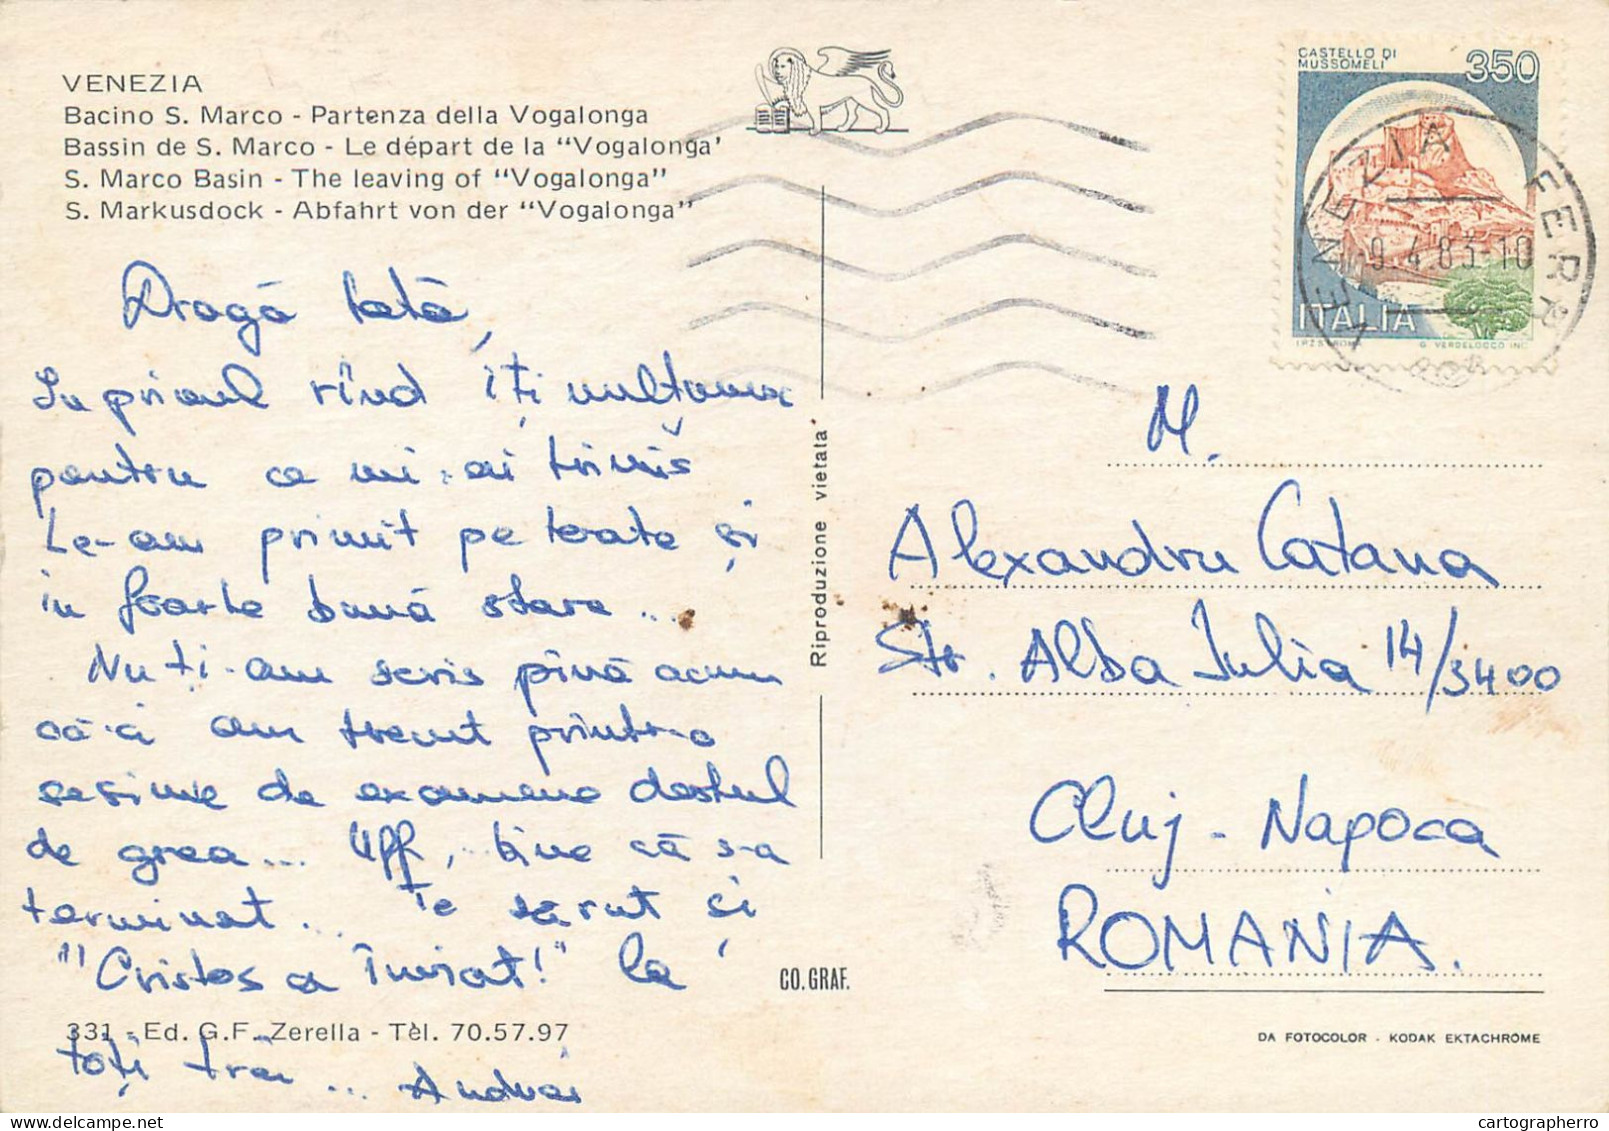 VENEZIA
Bacino S. Marco - Partenza della Vogalonga
Bassin de S. Marco - Le départ de la "Vogalonga'
S. Marco Basin - The leaving of "Vogalonga"
S. Markusdock - Abfahrt von der "Vogalonga"
CASTELLO DI
MUSSOMELI
350
ITALIA
I.P.Z.S. ROMA
G. VERDELOCCO INC.
VENEZIA FERR
9.4.83-10
Dragă tată,
În primul rînd îți mulțumesc
pentru ce mi-ai trimis
Le-am primit pe toate și
în foarte bună stare...
Nu ți-am scris pînă acum
că-i am trecut printr-o
sesiune de examene destul
de grea... Uff, bine că s-a
terminat... Te sărut și
"Cristos a înviat!" la
toți trei... Andrei
331 - Ed. G.F. Zerella - Tèl. 70.57.97
Riproduzione vietata
CO. GRAF.
M.
Alexandru Catana
Str. Alba Iulia 14/3400
Cluj - Napoca
ROMANIA.
DA FOTOCOLOR - KODAK EKTACHROME
cartographerro